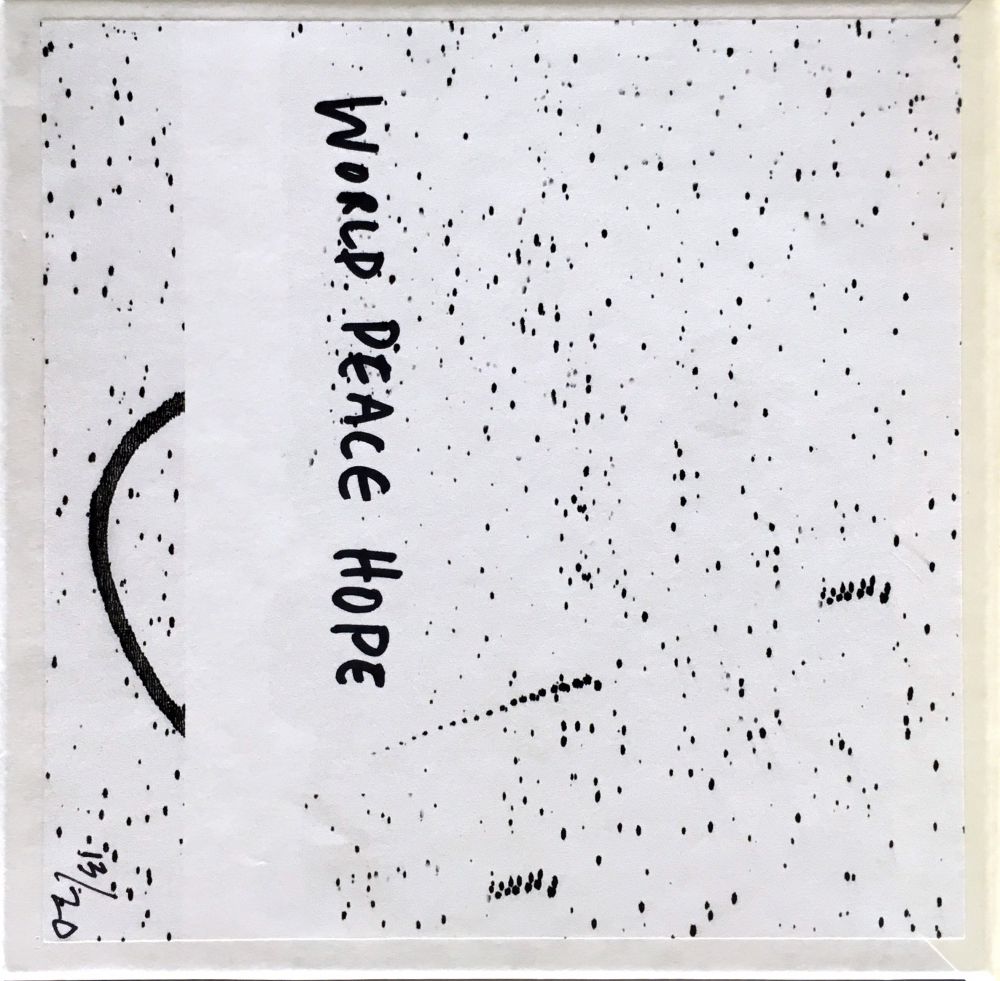 WORLD PEACE HOPE
13/20